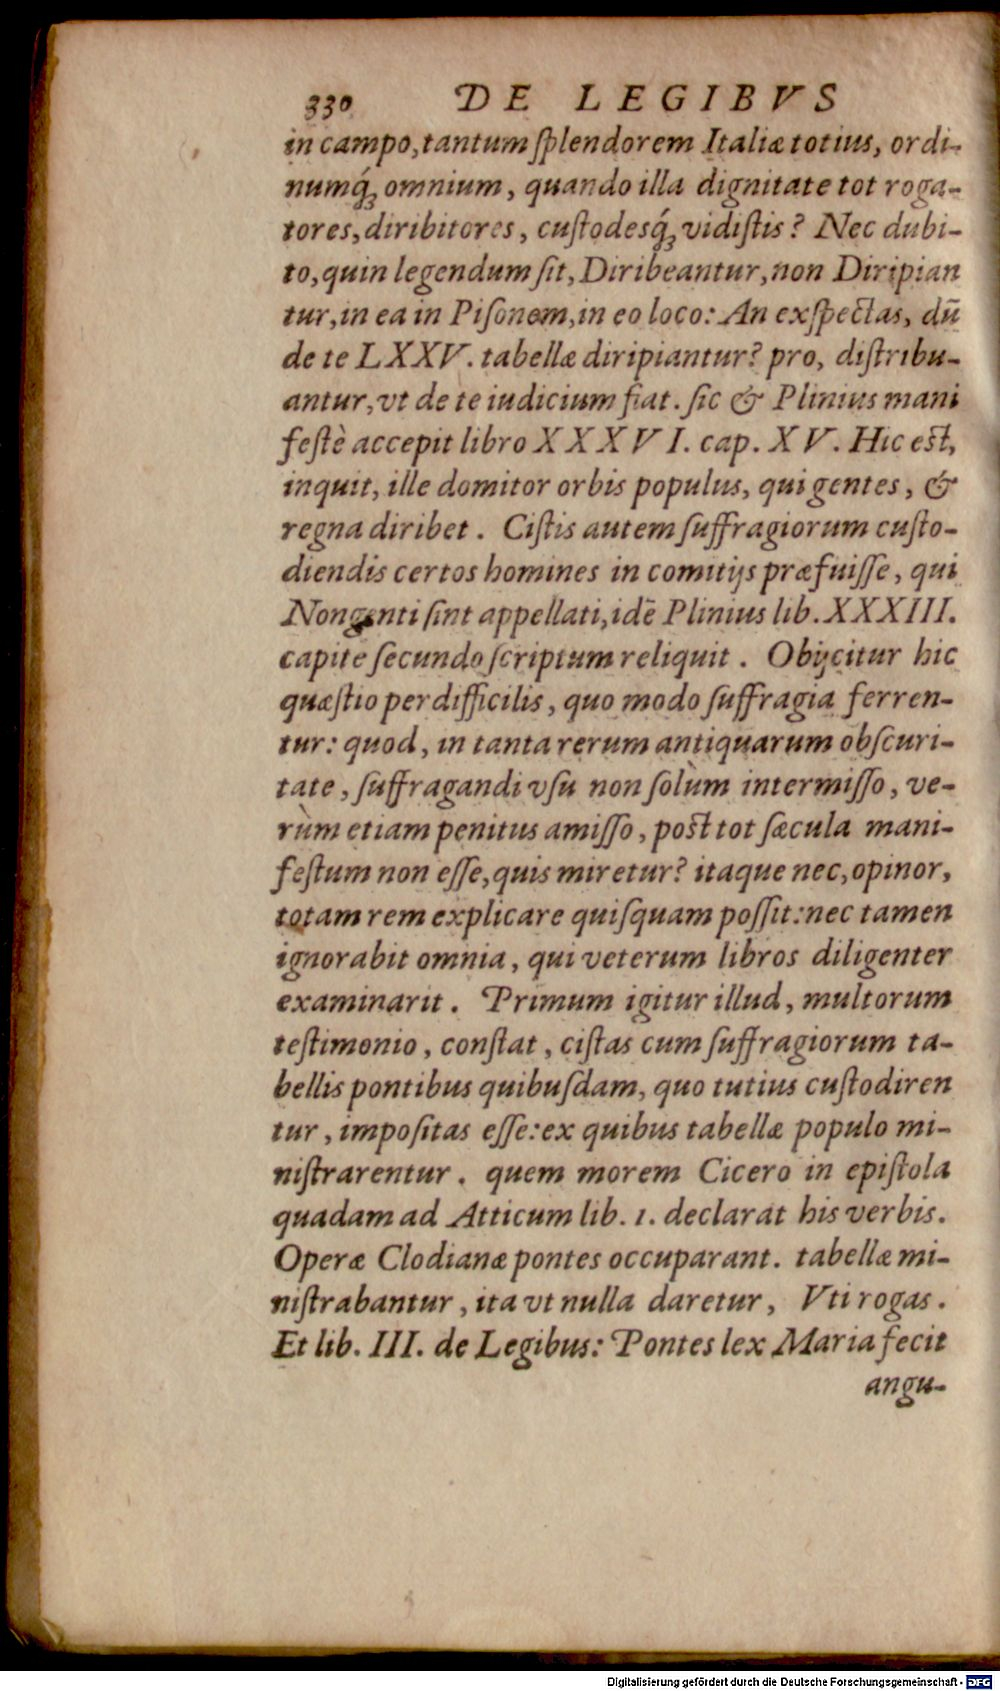 330 DE LEGIBVS
in campo, tantum ſplendorem Italiæ totius, ordi-
numq́ꝫ omnium, quando illa dignitate tot roga-
tores, diribitores, cuſtodesq́ꝫ vidiſtis? Nec dubi-
to, quin legendum ſit, Diribeantur, non Diripian
tur, in ea in Piſonem, in eo loco: An exſpectas, dū
de te LXXV. tabellæ diripiantur? pro, diſtribu-
antur, vt de te iudicium fiat. ſic & Plinius mani
feſtè accepit libro XXXVI. cap. XV. Hic eſt,
inquit, ille domitor orbis populus, qui gentes, &
regna diribet. Ciſtis autem ſuffragiorum cuſto-
diendis certos homines in comitijs præfuiſſe, qui
Nongenti ſint appellati, idē Plinius lib. XXXIII.
capite ſecundo ſcriptum reliquit. Obijcitur hic
quæſtio perdifficilis, quo modo ſuffragia ferren-
tur: quod, in tanta rerum antiquarum obſcuri-
tate, ſuffragandi vſu non ſolùm intermiſſo, ve-
rùm etiam penitus amiſſo, poſt tot ſæcula mani-
feſtum non eſſe, quis miretur? itaque nec, opinor,
totam rem explicare quiſquam poſſit: nec tamen
ignorabit omnia, qui veterum libros diligenter
examinarit. Primum igitur illud, multorum
teſtimonio, conſtat, ciſtas cum ſuffragiorum ta-
bellis pontibus quibuſdam, quo tutius cuſtodiren
tur, impoſitas eſſe: ex quibus tabellæ populo mi-
niſtrarentur. quem morem Cicero in epiſtola
quadam ad Atticum lib. 1. declarat his verbis.
Operæ Clodianæ pontes occuparant. tabellæ mi-
niſtrabantur, ita vt nulla daretur, Vti rogas.
Et lib. III. de Legibus: Pontes lex Maria fecit
angu-
Digitalisierung gefördert durch die Deutsche Forschungsgemeinschaft - DFG